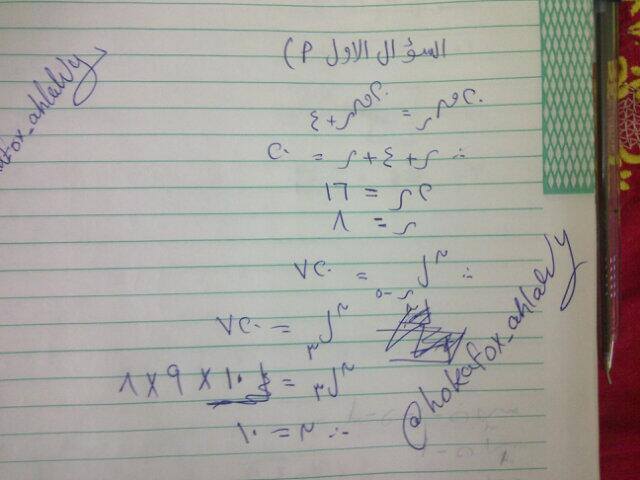 السؤال الاول (أ
٢٠ق س = ٢٠ق س+٤
∴ س + ٤ + س = ٢٠
٢س = ١٦
س = ٨
∴ ن ل س-٥ = ٧٢٠
ن ل ٣ = ٧٢٠
ن ل ٣ = ١٠ × ٩ × ٨
∴ ن = ١٠
@hokafox_ahlawy
fox_ahlawy